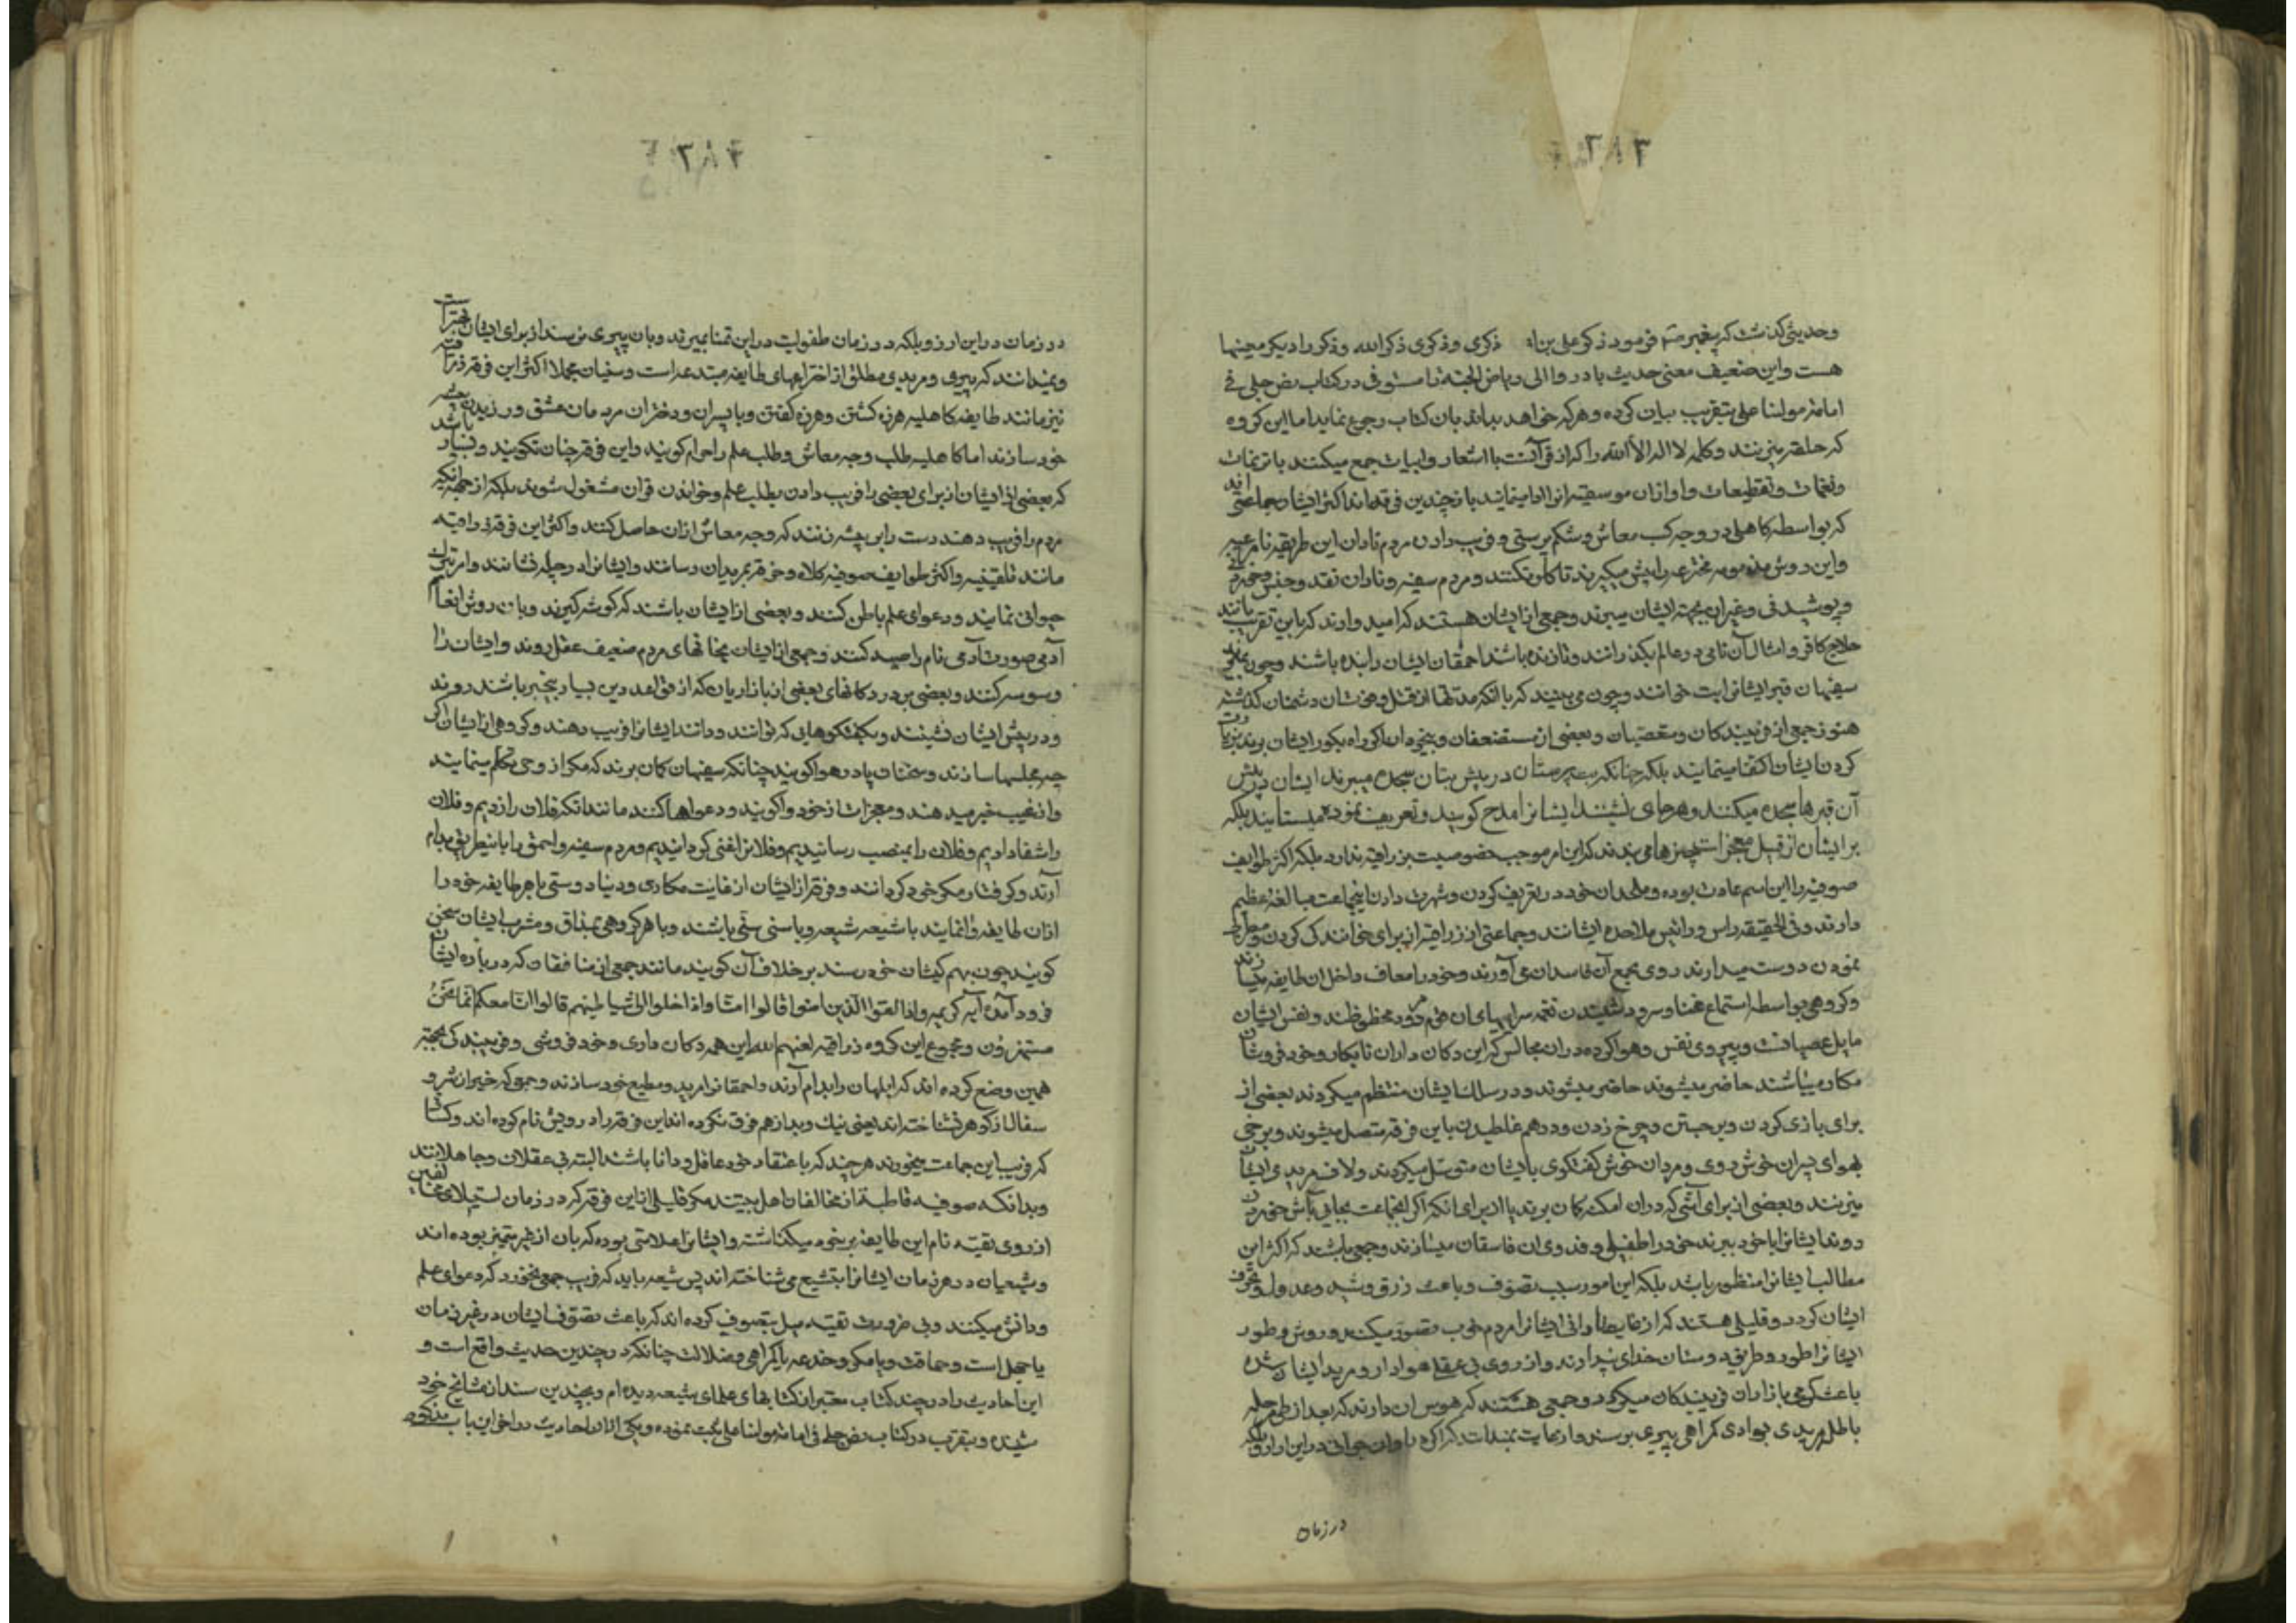 ۳۸۳
وحدیثی کذشت که پیغمبر فرمود ذکر علی بن ذکری وذکری ذکر الله وذکر را دیکر معینها
هست واین ضعیف معنی حدیث بادروا الی ریاض الجنه را مستوفی در کتاب نص جلی فی
امامة مولنا علی بتقریب بیان کرده وهرکه خواهد بداند بان کتاب رجوع نماید اما این کروه
که حلقه میزنند وکلمه لا اله الا الله را که از قرآنست با اشعار وابیات جمع میکنند با ترنمات
ونغمات وتقطیعات واوازان موسیقیه انرا ادا مینمایند باز چندین فرقه‌اند اکثر ایشان جماعتی اند
که بواسطه کاهلی در وجه کسب معاش وشکم پرستی وفریب دادن مردم نادان این طریقه نامرعیه
واین دوش مذمومه مخترعه را پیش میکیرند تا کار نکنند ومردم سفیه ونادان نقد وجنس وخوردنی
وپوشیدنی وغیر ان بجهة ایشان میبرند وجمعی از ایشان هستند که امید وارند که باین تقریب مانند
حلاج کافر وامثال آن نامی در عالم بکذرانند وتا زنده باشند احمقان ایشان را بنده باشند وچون بمیرند
سفیهان قبر ایشانرا بت خوانند وچون می بینند که با انکه مدتها از قتل وفوتشان دشمنان کذشته
هنوز جمعی از فریبندکان ومتعصبان وبعضی از مستضعفان وبیخردان اکر راه بکور ایشان برند بزیارت
کردن ایشان اکتفا مینمایند بلکه چنانکه بت پرستان در پیش بتان سجده میبرند ایشان در پیش
آن قبرها سجده میکنند وهر جای نشینند ایشانرا مدح کویند وتعریف نموده میستایند بلکه
بر ایشان از قبیل معجزات چیزها می بندند که این امر موجب خصوصیت بزراقیه ندارد بلکه اکثر طوایف
صوفیه را این اسم عادت بوده وملحدان خود در تعریف کردن وشهرت دادن اینجماعت مبالغهٔ عظیم
دارند وفی الحقیقه راس ورائیس ملاحده ایشانند وجماعتی از زراقیه از برای خوانندکی کردن ومعرکه
نمودن دوست میدارند روی بجمع آن فاسدان می آورند وخود را معاف داخل ان طایفه میسازند
وکروهی بواسطه استماع غنا وسرود شنیدن نغمه سراییهای ان قوم مردود محظوظند ونفس ایشان
مایل عصیانست وپیروی نفس وهوا کرده دران مجالس که این دکان داران نابکار وخود فروشان
مکار میباشند حاضر میشوند حاضر میشوند ودر سلک ایشان منتظم میکردند بعضی از
برای بازی کردن وبرجستن وچرخ زدن ودرهم غلطیدن باین فرقه متصل میشوند وبرخی
بهوای پسران خوش روی ومردان خوش کفتکوی بایشان متوسل میکردند ولاف مریدی ایشان
میزنند وبعضی از برای آشی که دران امکنه کمان برند یا از برای انکه اکر اینجماعت بجایی بآش خوردن
روند ایشانرا با خود ببرند خود را طفیلی وفدوی ان فاسقان میسازند وجمعی باشند که اکثر این
مطالب ایشانرا منظور باشد بلکه این امور سبب تصوف وباعث زرق وشید وعدول وتحرف
ایشان کردد وقلیلی هستند که از غایت نادانی ایشانرا مردم خوب تصور میکنند وروش وطور
ایشانرا طور وطریق دوستان خدای پندارند واز روی بی عقلی هوادار ومرید ایشان شده
باعث کرمی بازاران فریبندکان میکردد وجمعی هستند که هوس ان دارند که بعد از طی مرحله
باطل مریدی بوادی کمراهی پیری برسند واز نهایت بمذلت کمراکر دراوان جوانی دراین ارزو بلکه
در زمان
۳۸۴
در زمان دراین ارزو بلکه در زمان طفولیت دراین تمنا بمیرند وبان پیری نرسند از برای ایشان بهتر است
ونمیدانند که پیری ومریدی مطلق از اختراعهای طایفه مبتدعه است وسنیان مجملا اکثر این فرقه زراقیه
نیز مانند طایفه کاهلیه هرزه کشتن وهرزه کفتن وبا پسران ودختران مردمان عشق ورزیدن پیشه
خود سازند اما کاهلیه طلب وجه معاش وطلب علم را حرام کویند واین فرقه چنان نکویند وبسیار باشد
که بعضی از ایشان از برای بعضی را فریب دادن بطلب علم وخواندن قران مشغول شوند بلکه از جهة انکه
مردم را فریب دهند دست را بر پیشه زنند که وجه معاش ازان حاصل کنند واکثر این فرقه زراقیه
مانند تلقینیه واکثر طوایف صوفیه کلاه وخرقه بمریدان رسانند وایشانرا در چله نشانند وامر بترک
حیوانی نمایند ودعوای علم باطن کنند وبعضی از ایشان باشند که کوشه کیرند وبان روش انعام
آدمی صورت آدمی نام را صید کنند وجمعی از ایشان بخانهای مردم ضعیف عقل روند وایشان را
وسوسه کنند وبعضی بر در دکانهای بعضی از بازاریان که از قواعد دین بسیار بیخبر باشند روند
ودر پیش ایشان نشینند وبکفتکوهایی که توانند ودانند ایشانرا فریب دهند وکروهی از ایشان اکر
چه مجلسها سازند وسخنان پا در هوا کویند چنانکه سفیهان کمان برند که مکر از وحی تکلم مینمایند
واز غیب خبر میدهند ومعجزات از خود واکویند ودعواها کنند مانند انکه فلان را زدیم وفلان
را شفا دادیم وفلان را بمنصب رسانیدیم وفلانرا غنی کردانیدیم ومردم سفیه واحمق را باینطریق بدام
آرند وکرفتار مکر خود کردانند وفرقه از ایشان از غایت مکاری ودنیا دوستی با هر طایفه خود را
ازان طایفه وانمایند با شیعه شیعه وبا سنی سنی باشند وبا هر کروهی بمذاق ومشرب ایشان سخن
کویند چون بهم کیشان خود رسند بر خلاف آن کویند مانند جمعی از منافقان که در باره ایشان
فرود آمده آیه کریمه واذا لقوا الذین امنوا قالوا امنا واذا خلوا الی شیاطینهم قالوا انا معکم انما نحن
مستهزؤن ومجموع این کروه زراقیه لعنهم الله این همه دکان داری وخود فروشی وفریبندکی بجهة
همین وضع کرده اند که ابلهان را بدام آرند واحمقانرا مرید ومطیع خود سازند وجمعی که خیر از شر و
سفال از کوهر نشناخته اند یعنی نیک وبد از هم فرق نکرده اند این فرقه را درویش نام کرده اند وکسانی
که فریب این جماعت میخورند هرچند که باعتقاد خود عاقل ودانا باشند البته بی عقلان وجاهلانند
وبدانکه صوفیه قاطبة از مخالفان اهل بیتند مکر قلیلی از این فرقه که در زمان استیلای مخالفین
از روی تقیه نام این طایفه بر خود میکذاشته وایشانرا علامتی بوده که بان از غیر متمیز بوده اند
وشیعیان در هر زمان ایشانرا بتشیع می شناخته اند پس شیعه باید که فریب جمعی نخورد که دعوای علم
ودانش میکنند وبی ضرورت تقیه میل بتصوف کرده اند که باعث تصوف ایشان در غیر زمان
یا جهل است وحماقت ویا مکر وخدعه یا کمراهی وضلالت چنانکه در چندین حدیث واقع است و
این احادیث را در چند کتاب معتبر از کتابهای علمای شیعه دیده ام وبچندین سند از مشایخ خود
شنیده وبتقریب در کتاب نص جلی فی امامة مولنا علی ثبت نموده ویکی ازان احادیث در اخر این باب مذکور